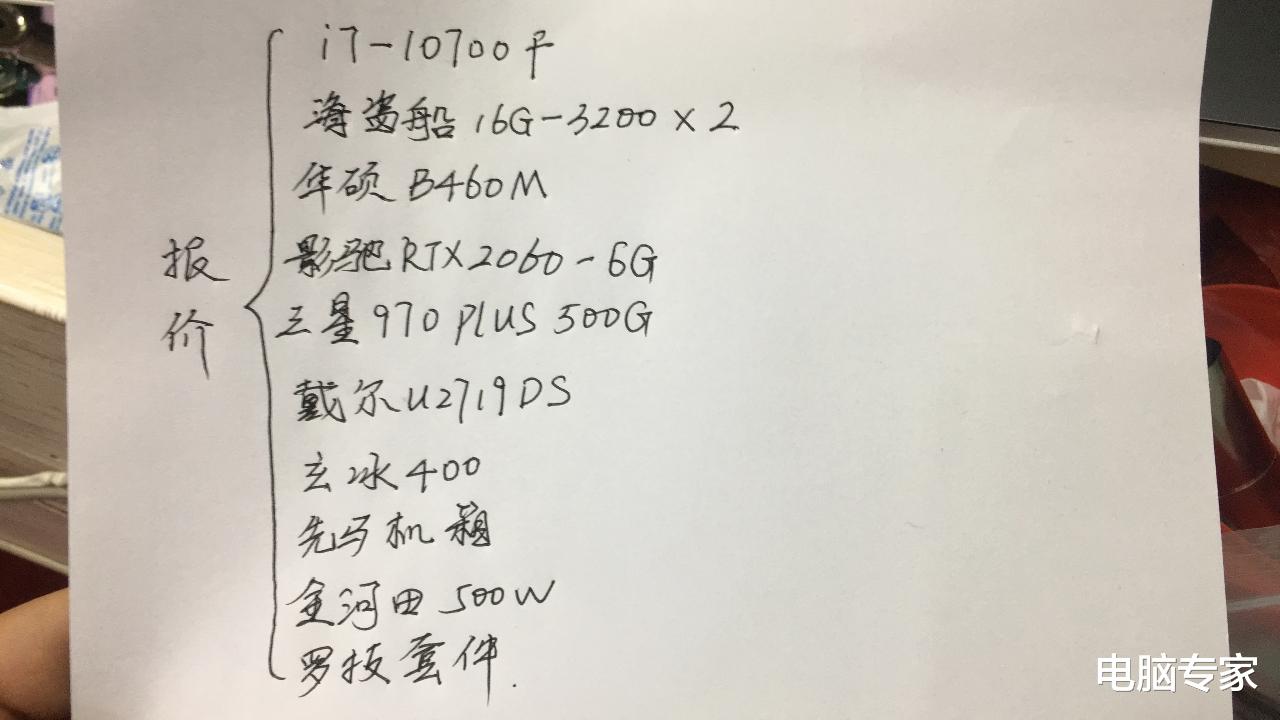 报价
i7-10700F
海盗船 16G-3200 x 2
华硕 B460M
影驰 RTX2060-6G
三星 970 PLUS 500G
戴尔 U2719DS
玄冰 400
先马机箱
金河田 500W
罗技套件.
电脑专家